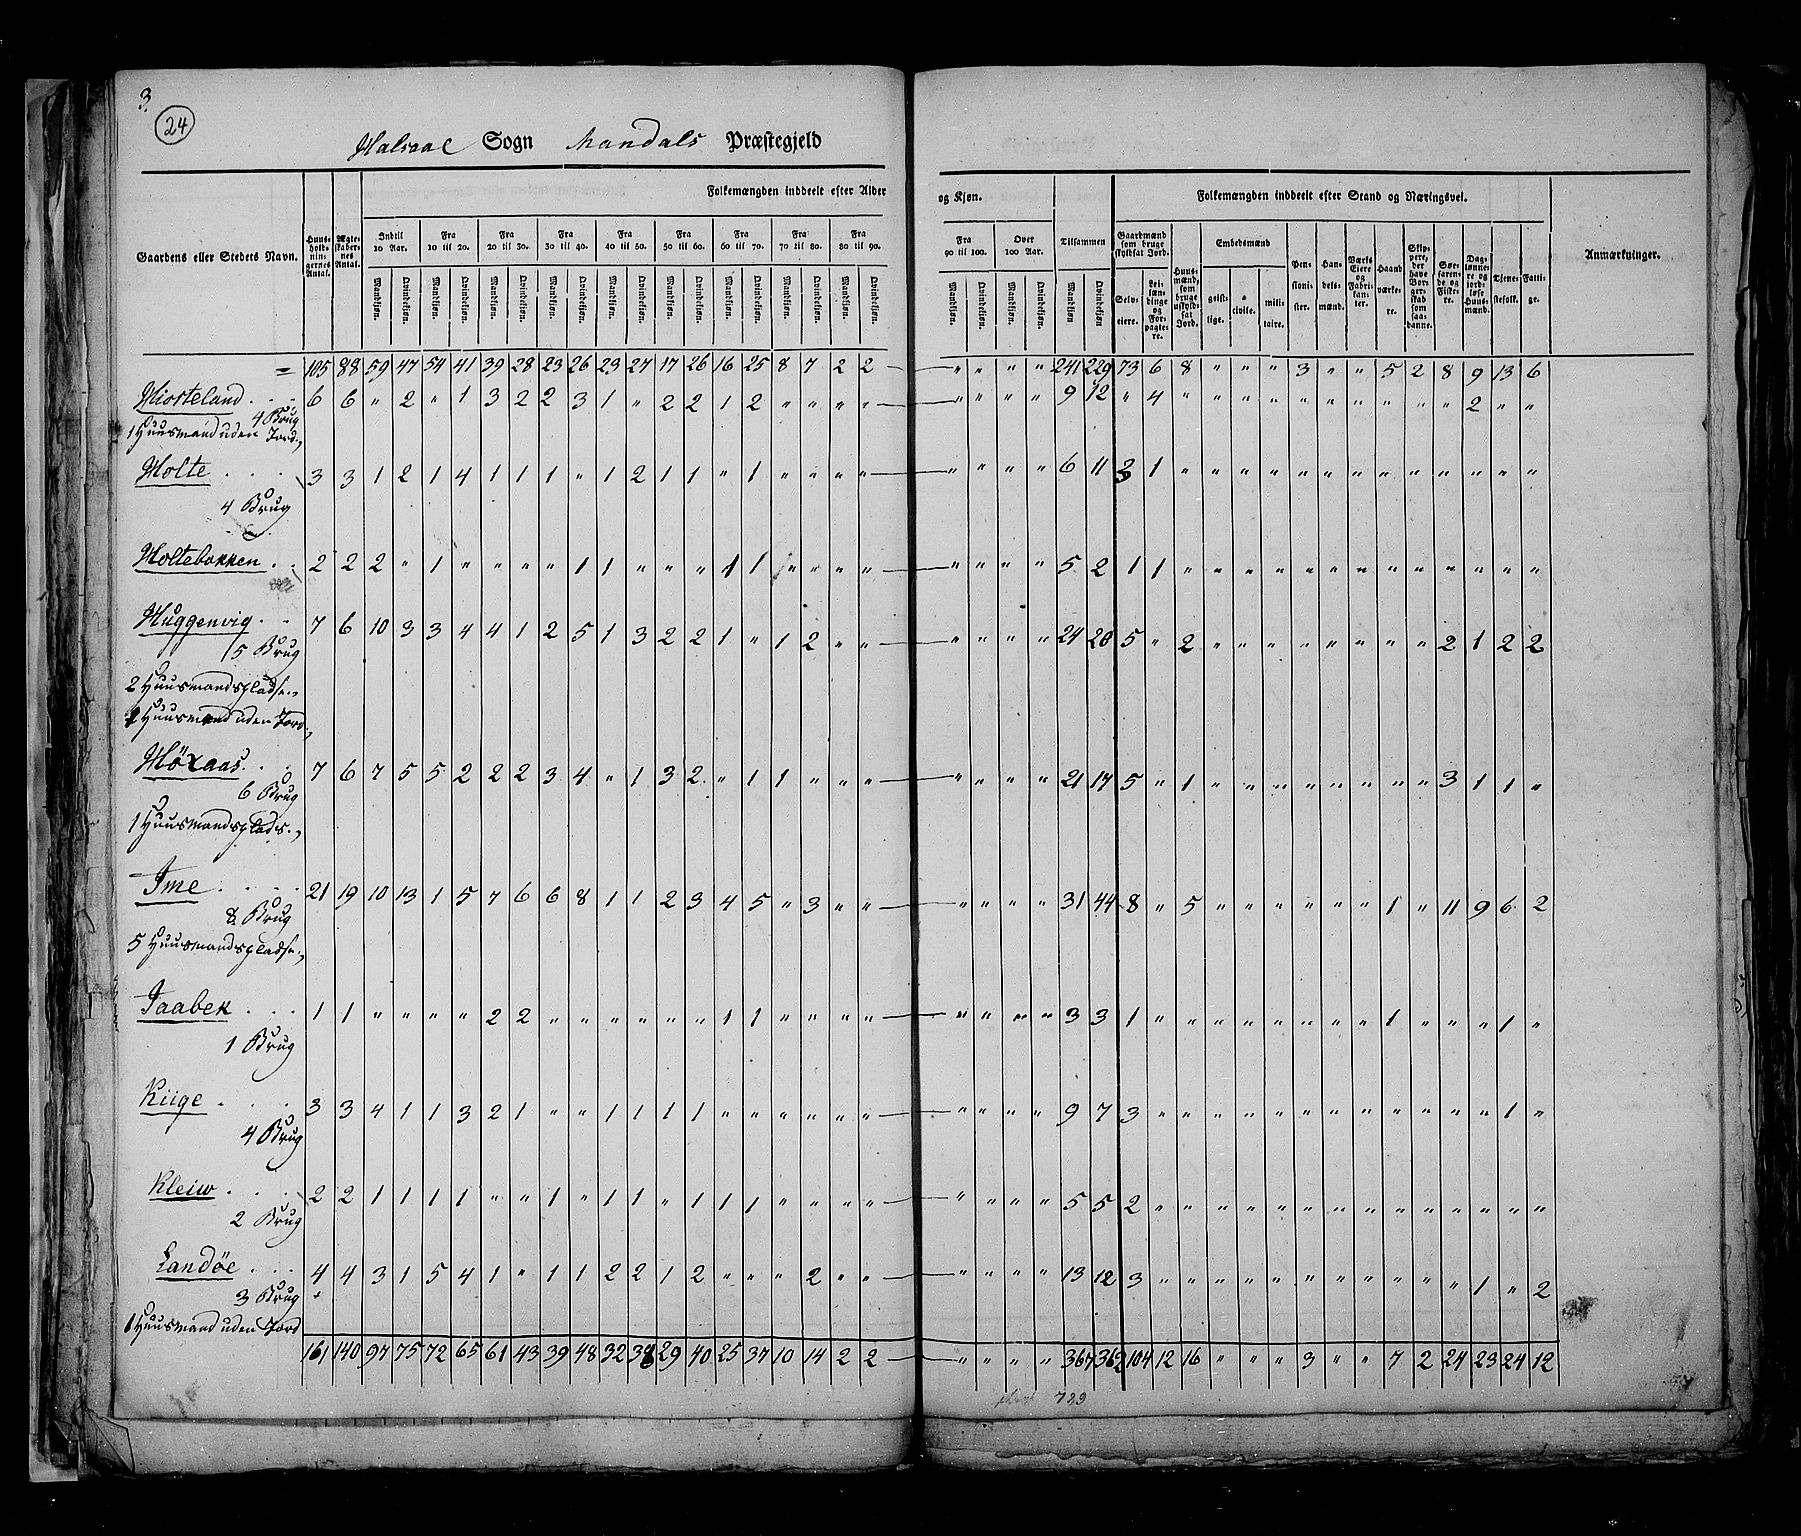 3.
24
Halsaae Sogn Mandals Præstegjeld
Folkemængden inddeelt efter Alder og Kjøn.
Folkemængden inddeelt efter Stand og Næringsvei.
Gaardens eller Stedets Navn.
Huus-holdnin-gernes Antal.
Ægte-skaber-nes Antal.
Indtil 10 Aar.
Fra 10 til 20.
Fra 20 til 30.
Fra 30 til 40.
Fra 40 til 50.
Fra 50 til 60.
Fra 60 til 70.
Fra 70 til 80.
Fra 80 til 90.
Fra 90 til 100.
Over 100 Aar.
Tilsammen
Gaardmænd som bruge skyldsat Jord.
Selv-eiere.
Lei-læn-dinge og For-pagte-re.
Huus-mænd, som bruge uskyldsat Jord.
Embedsmænd
geist-lige.
civile.
mili-taire.
Pen-sioni-ster.
Han-dels-mænd.
Værks Eiere og Fabrikan-ter.
Haand-værke-re.
Skip-pere, der have Bor-ger-skab som saa-danne.
Søe-faren-de og Fiske-re.
Dag-lønne-re og jord-løse Huus-mænd.
Tjene-stefolk.
Fatti-ge.
Anmærkninger.
Mandkjøn. Qvindekjøn. Mandkjøn. Qvindekjøn. Mandkjøn. Qvindekjøn. Mandkjøn. Qvindekjøn. Mandkjøn. Qvindekjøn. Mandkjøn. Qvindekjøn. Mandkjøn. Qvindekjøn. Mandkjøn. Qvindekjøn. Mandkjøn. Qvindekjøn. Mandkjøn. Qvindekjøn. Mandkjøn. Qvindekjøn. Mandkjøn Qvindekjøn
= 105 88 59 47 54 41 39 28 23 26 23 24 17 26 16 25 8 7 2 2 — " " " " 241 229 73 6 8 " " " 3 " " 5 2 8 9 13 6
Hiorteland . . . 6 6 " 2 " 1 3 2 2 3 1 " 2 2 1 2 " " " " — " " " " 9 12 " 4 " " " " " " " " " " 2 " "
4 Brug
1 Huusmand uden Jord.,
Holte . . . . 3 3 1 2 1 4 1 1 1 " 1 2 1 1 " 1 " " " " — " " " " 6 11 3 1 " " " " " " " " " " " " "
4 Brug
Holtebakken . . 2 2 2 " 1 " " " " 1 1 " " " 1 1 " " " " — " " " " 5 2 1 1 " " " " " " " " " " " " "
Huggenvig . . 7 6 10 3 3 4 4 1 2 5 1 3 2 2 1 " 1 2 " " — " " " " 24 20 5 " 2 " " " " " " " " 2 1 2 2
5 Brug
2 Huusmandspladse.,
1 Huusmand uden Jord.,
Höxaas . . 7 6 7 5 5 2 2 2 3 4 " 1 3 2 " 1 1 " " " — " " " " 21 17 5 " 1 " " " " " " " " 3 1 1 "
6 Brug
1 Huusmandsplads.,
Ime . . . . 21 19 10 13 1 5 7 6 6 8 1 1 2 3 4 5 " 3 " " — " " " " 31 44 8 " 5 " " " " " " 1 " 11 9 6 2
8 Brug
5 Huusmandspladse.,
Jaabek . . . 1 1 " " " " 2 2 " " " " " " 1 1 " " " " — " " " " 3 3 1 " " " " " " " " 1 " " " 1 "
1 Brug
Kiige . . . . 3 3 4 1 1 3 2 1 " " 1 1 1 1 " " " " " " — " " " " 9 7 3 " " " " " " " " " " " " 1 "
4 Brug
Kleiw . . . 2 2 1 1 1 1 " " 1 " 1 1 " 1 1 1 " " " " — " " " " 5 5 2 " " " " " " " " " " " " " "
2 Brug
Landöe . . . 4 4 3 1 5 4 1 " 1 1 2 2 1 2 " " " 2 " " — " " " " 13 12 3 " " " " " " " " " " " 1 " 2
3 Brug
1 Huusmand uden Jord
161 140 97 75 72 65 61 43 39 48 32 36 29 40 25 37 10 14 2 2 — " " " " 367 362 104 12 16 " " " 3 " " 7 2 24 23 24 12
729